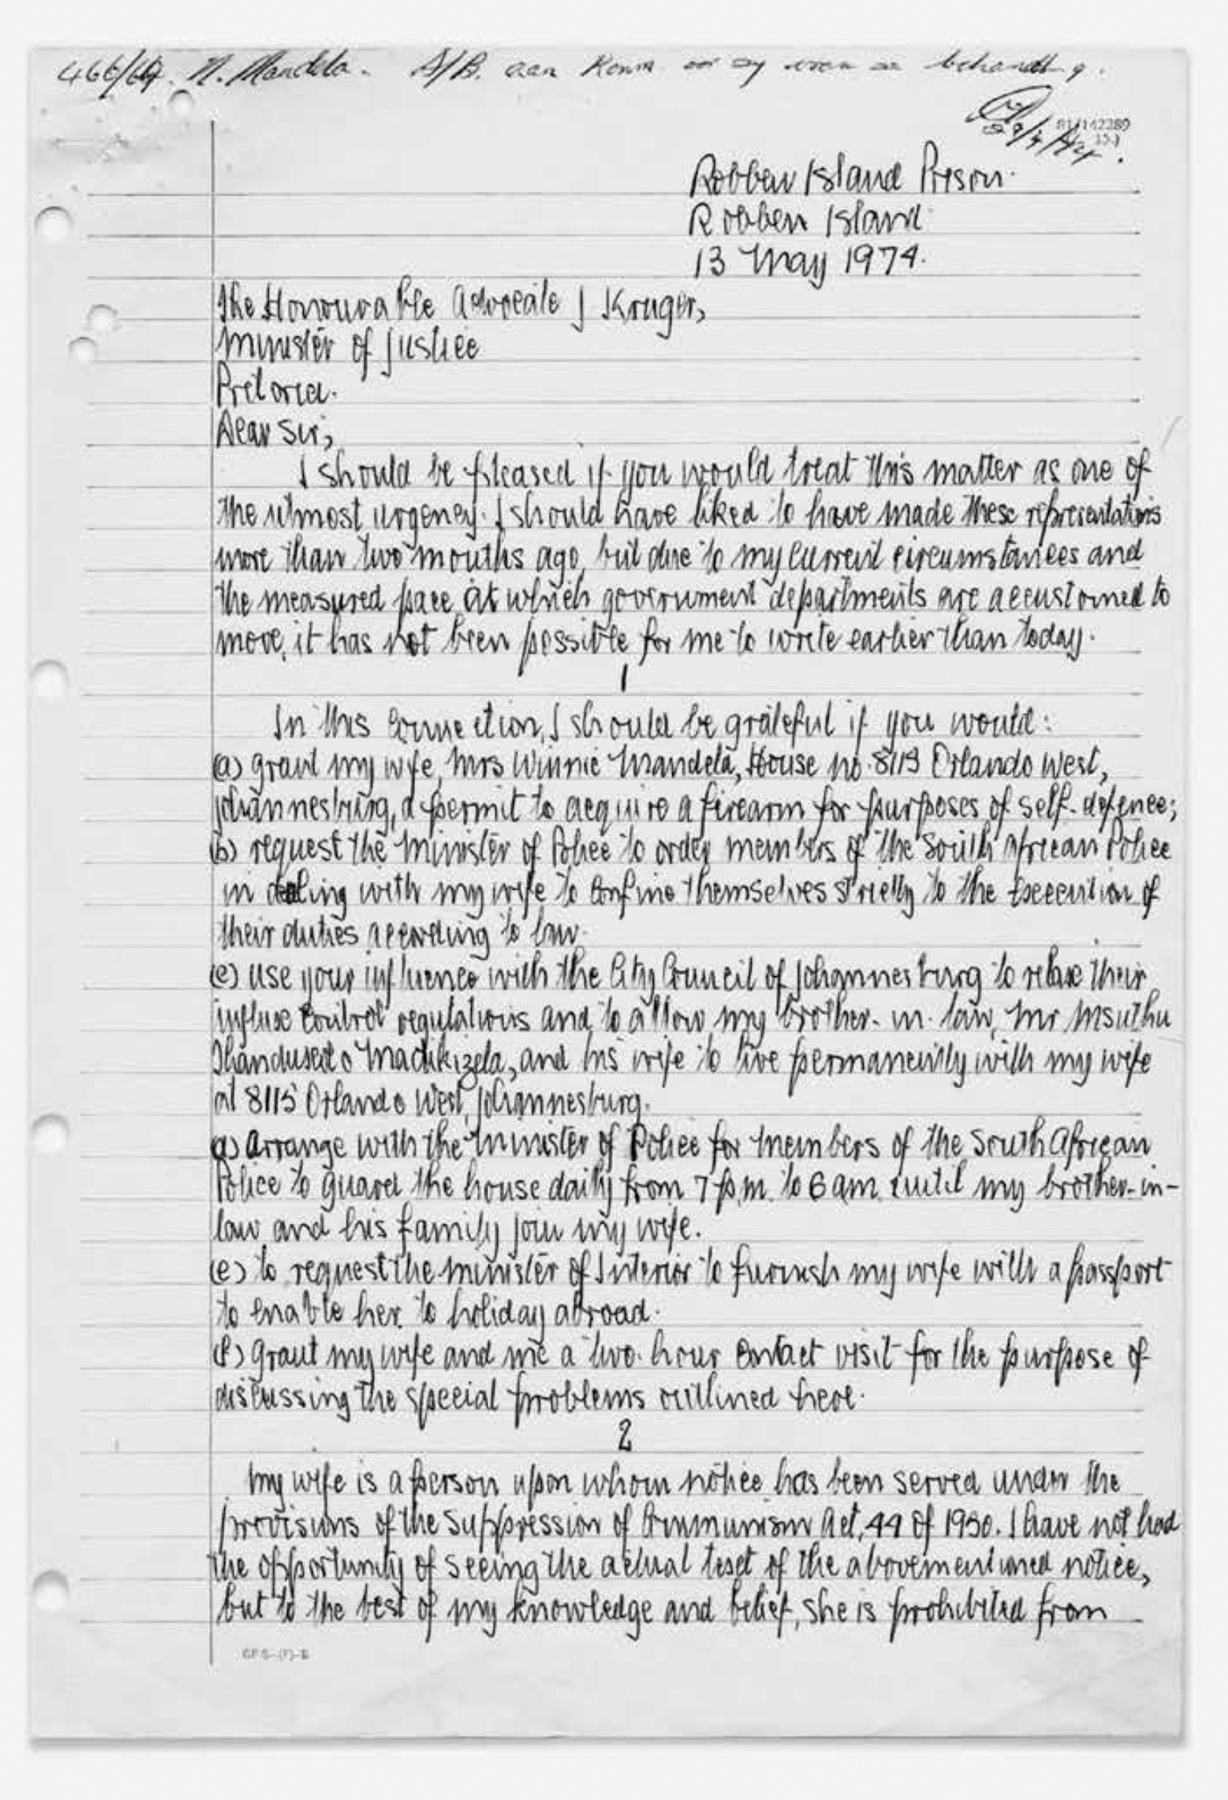 466/64. N. Mandela. A/B. aan Komm
81/142289
Robben Island Prison.
Robben Island.
13 May 1974.
The Honourable Advocate J Kruger,
Minister of Justice
Pretoria.
Dear Sir,
I should be pleased if you would treat this matter as one of
the utmost urgency. I should have liked to have made these representations
more than two months ago, but due to my current circumstances and
the measured pace at which government departments are accustomed to
move, it has not been possible for me to write earlier than today.
1
In this connection, I should be grateful if you would:
(a) grant my wife, Mrs Winnie Mandela, House no. 8115 Orlando West,
Johannesburg, a permit to acquire a firearm for purposes of self-defence;
(b) request the Minister of Police to order members of the South African Police
in dealing with my wife to confine themselves strictly to the execution of
their duties according to law.
(c) use your influence with the City Council of Johannesburg to relax their
influx control regulations and to allow my brother-in-law, Mr Msuthu
Thanduxolo Madikizela, and his wife to live permanently with my wife
at 8115 Orlando West, Johannesburg.
(d) Arrange with the Minister of Police for members of the South African
Police to guard the house daily from 7 p.m. to 6 am. until my brother-in-
law and his family join my wife.
(e) to request the Minister of Interior to furnish my wife with a passport
to enable her to holiday abroad.
(f) grant my wife and me a two-hour contact visit for the purpose of
discussing the special problems outlined here.
2
My wife is a person upon whom notice has been served under the
provisions of the Suppression of Communism Act, 44 of 1950. I have not had
the opportunity of seeing the actual text of the abovementioned notice,
but to the best of my knowledge and belief, she is prohibited from